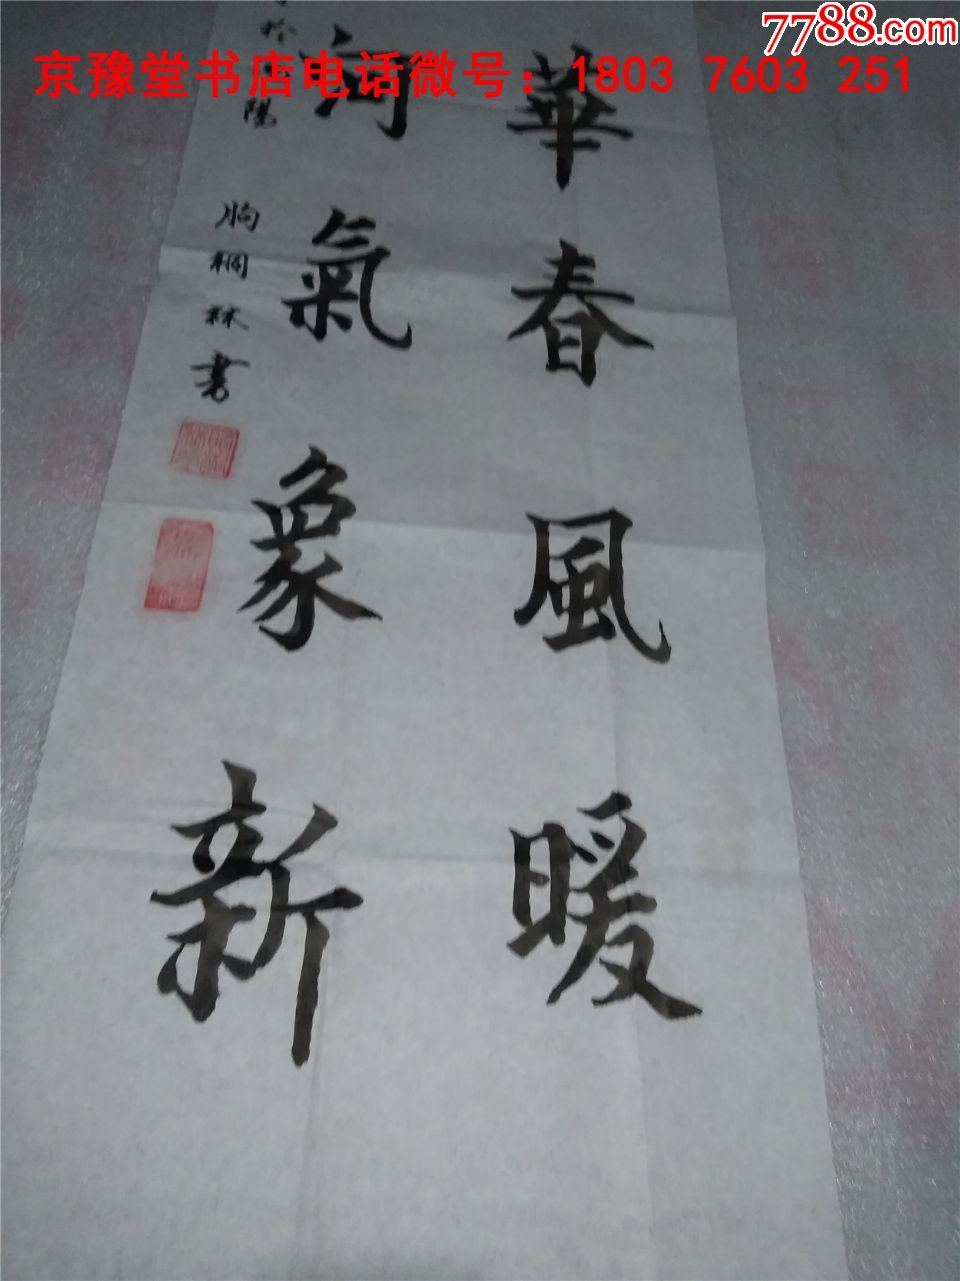 7788.com
京豫堂书店电话微号：1803 7603 251
華春風暖
河氣象新
林書